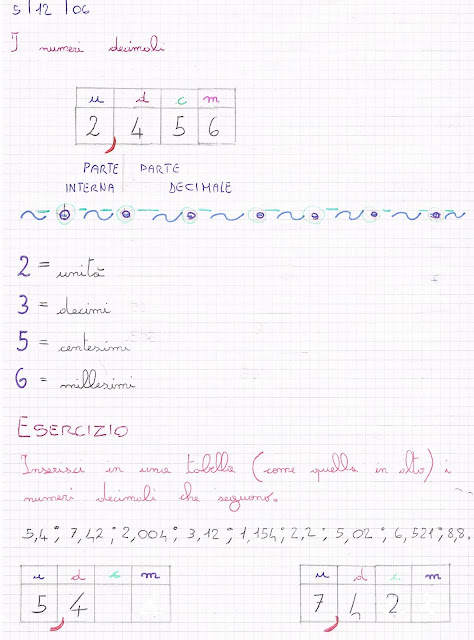 5/12/06
I numeri decimali
u d c m
2, 4 5 6
PARTE PARTE
INTERNA DECIMALE
2 = unità
3 = decimi
5 = centesimi
6 = millesimi
ESERCIZIO
Inserisci in una tabella (come quella in alto) i
numeri decimali che seguono.
5,4; 7,42; 2,004; 3,12; 1,154; 2,2; 5,02; 6,521; 8,8.
u d c m u d c m
5, 4 7, 4 2